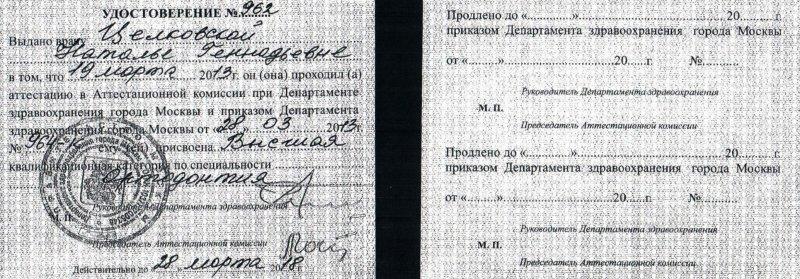 УДОСТОВЕРЕНИЕ № 962
Выдано врачу Целковской
Наталье Геннадьевне
в том, что 19 марта 2013г. он (она) проходил (а)
аттестацию в Аттестационной комиссии при Департаменте
здравоохранения города Москвы и приказом Департамента
здравоохранения города Москвы от «28» 03 2013г.
№ ему (ей) присвоена Высшая
квалификационная категория по специальности
Ортодонтия
Руководитель Департамента здравоохранения
М. П.
Председатель Аттестационной комиссии
Действительно до «28» марта 2018г.
Продлено до «............»........................20......г.
приказом Департамента здравоохранения города Москвы
от «.........»...............................20......г. №..........
Руководитель Департамента здравоохранения
М. П.
Председатель Аттестационной комиссии
Продлено до «............»........................20......г.
приказом Департамента здравоохранения города Москвы
от «.........»...............................20......г. №..........
Руководитель Департамента здравоохранения
М. П.
Председатель Аттестационной комиссии